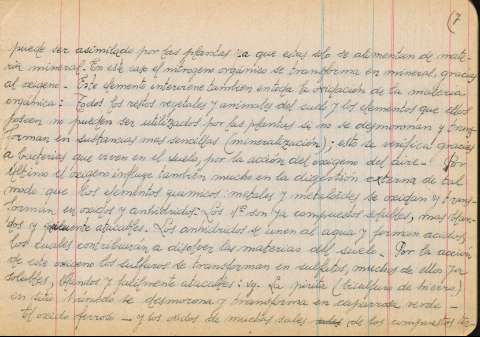 (7
puede ser asimilado por las plantas ya que estas solo se alimentan de mate-
ria mineral. En este caso el nitrogeno organico se transforma en mineral, gracias
al oxigeno. Este elemento interviene tambien en toda la oxidación de la materia
orgánica: Todos los restos vegetales y animales del suelo y los elementos que ellos
poseen no pueden ser utilizados por las plantas si no se desmoronan y trans-
forman en substancias mas sencillas (mineralización); esto se verifica gracias
a bacterias que viven en el suelo, por la acción del oxigeno del aire. Por
último el oxigeno influye también mucho en la disgregación externa de tal
modo que los elementos quimicos: metales y metaloides se oxidan y trans-
forman en oxidos y anhidridos. Los 1ºs son ya compuestos solubles, mas blan-
dos y atacables. Los anhidridos se unen al agua y forman acidos
los cuales contribuirán a disolver las materias del suelo. Por la acción
de este oxigeno los sulfuros se transforman en sulfatos, muchos de ellos ya
solubles, blandos y facilmente atacables: vg. La pirita (bisulfuro de hierro)
en sitio húmedo se desmorona y transforma en caparrosa verde
El oxido ferroso y los oxidos de muchas sales de los compuestos